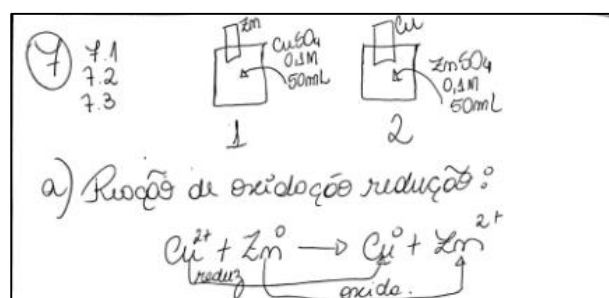 7
7.1
7.2
7.3
Zn
CuSO4
0,1M
50mL
1
Cu
ZnSO4
0,1M
50mL
2
a) Reação de oxidação redução:
Cu²⁺ + Zn⁰ → Cu⁰ + Zn²⁺
reduz
oxida.